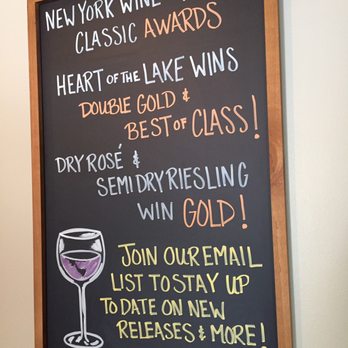 NEW YORK WINE
CLASSIC AWARDS
HEART OF THE LAKE WINS
DOUBLE GOLD &
BEST OF CLASS!
DRY ROSÉ &
SEMI DRY RIESLING
WIN GOLD!
JOIN OUR EMAIL
LIST TO STAY UP
TO DATE ON NEW
RELEASES & MORE!